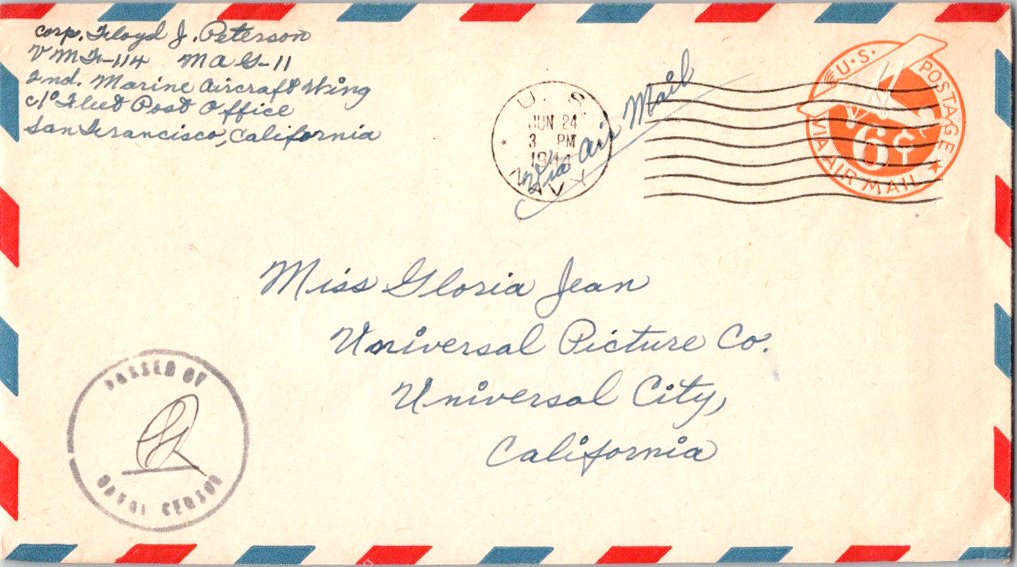 Corp. Floyd J. Peterson
VMF-114 MAG-11
2nd. Marine Aircraft Wing
c/o Fleet Post Office
San Francisco, California
U. S.
JUN 24
3 PM
NAVY
Via Air Mail
U.S. POSTAGE
6¢
VIA AIR MAIL
Miss Gloria Jean
Universal Picture Co.
Universal City,
California
PASSED BY
NAVAL CENSOR